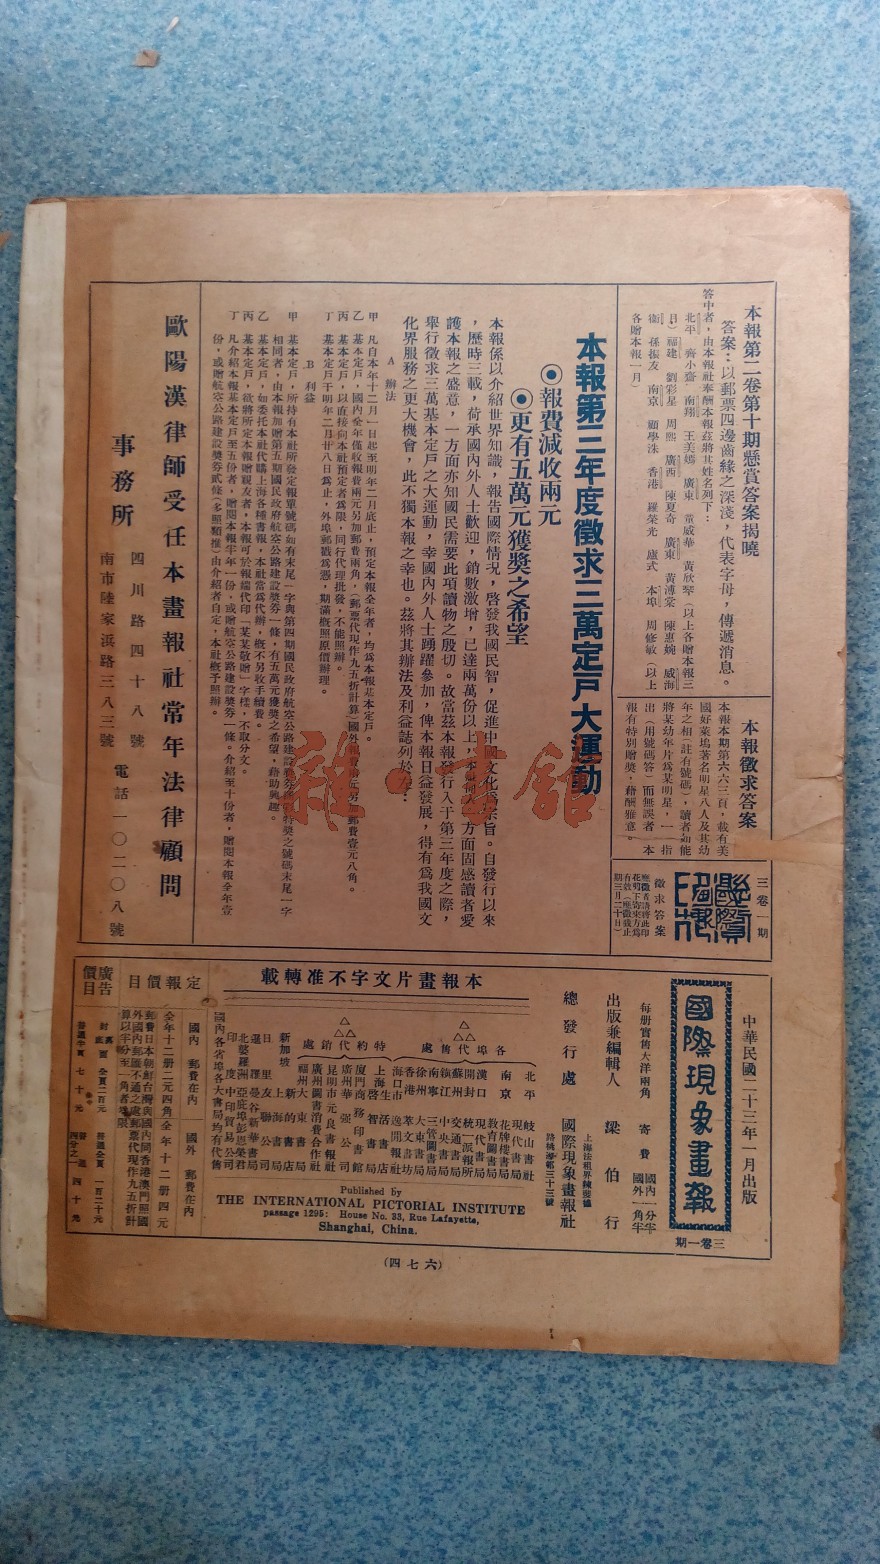 本報第二卷第十期懸賞答案揭曉
答案：以郵票四邊齒緣之深淺，代表字母，傳遞消息。
答中者，由本報社奉酬本報茲將其姓名列下：
北平　齊小齋　南翔　王美嫣　廣東　董威華　黃欣
（以上各贈本報三
月）福建　劉彩星　周熙　廣西　陳夏奇　廣東　黃溥棠　陳惠婉　威海
衛　孫振友　南京　顧學洙　香港　羅榮光　盧式　本埠　周修敏（以上
各贈本報一月）
本報徵求答案
本報本期第六六三頁，載有美
國好萊塢著名明星八人及其幼
年之相，註有號碼，讀者如能
將某幼年片爲某明星，一一指
出（用號碼答）而無誤者，本
報有特別贈獎，藉酬雅意。
三卷一期
國際現象畫報
徵求答案
應徵者請將此印
花剪下寄來方爲
有效（應徵截止
期三月二十日）
本報第三年度徵求三萬定戶大運動
◉報費減收兩元
◉更有五萬元獲獎之希望
本報係以介紹世界知識，報告國際情況，啓發我國民智，促進中國文化爲宗旨。自發行以來
，歷時三載，荷承國內外人士歡迎，銷數激增，已達兩萬份以上，本報同人一方面固感讀者愛
護本報之盛意，一方面亦知國民需要此項讀物之殷切。故當茲本報發行入于第三年度之際，
舉行徵求三萬基本定戶之大運動，幸國內外人士踴躍參加，俾本報日益發展，得有爲我國文
化界服務之更大機會，此不獨本報之幸也。茲將其辦法及利益誌列於左：
A　辦法
甲　凡自本年十二月一日起至明年二月底止，預定本報全年者，均爲本報基本定戶。
乙　基本定戶，國內全年僅收報費兩元另加郵費兩角，（郵票代現作九五折計算）國外報費兩元另加郵費壹元八角。
丙　基本定戶，以直接向本社預定者爲限，同行代理批發，不能照辦。
丁　基本定戶于明年二月廿八日爲止，外埠郵戳爲憑，期滿槪照原價辦理。
B　利益
甲　基本定戶，所持有本社所發定報單號碼如有末尾一字與第四期國民政府航空公路建設獎券頭獎特獎之號碼末尾一字
相同者，由本報加贈第五期國民政府航空公路建設獎券一條，有五萬元獲獎之希望，藉助興趣。
乙　基本定戶，如委托本社代購上海各種書報，本社當爲代辦，概不另收手續費。
丙　基本定戶，欲將所定本報贈親友者，本報可於報端代印「某某敬贈」字樣，不取分文。
丁　凡介紹本報基本定戶至五份者，贈閱本報半年一份，或贈航空公路建設獎券一條。介紹至十份者，贈閱本報全年壹
份，或贈航空公路建設獎券貳條（多照類推）由介紹者自定，本社概予照辦。
歐陽漢律師受任本畫報社常年法律顧問
事務所
四川路四十八號
南市陸家浜路三八三號
電話一〇二〇八號
中華民國二十三年一月出版
國際現象畫報
三卷一期
每册實售大洋兩角　寄費
國內一分半
國外一角半
出版兼編輯人　梁伯行
總發行處　國際現象畫報社
本報畫片文字不准轉載
各埠代售處
北平　岐山書社
南京　現代書局
花牌樓書局
教育圖書局
漢口　現代書局
開封　統一派報所
蘇州　交通書局
鎮江　中央書局
南寧　三管圖書局
徐州　大東書局
香港　萃文書坊
海口市　逸開報社
特約代銷處
上海　生活書店
啓智書局
廈門　商務印書館
廣州　華強公司
昆明市　元良書報社
廣州　圖書消費合作社
福州　大東書局
新加坡　新的書店
上海書局
日里　友聯公司
暹羅　曼谷新華書局
北婆羅洲　亞庇埠彭恩榮君
印度　中印貿易公司
國內各省埠各大書局均有代售
Published by
THE INTERNATIONAL PICTORIAL INSTITUTE
passage 1295: House No. 33, Rue Lafayette,
Shanghai, China.
定報價目
國內　郵費在內
全年十二册二元四角
國外　郵費在內
全年十二册四元
郵費日本朝鮮台灣與國內同香港澳門照國
外國內郵匯不通之處郵票代現作九五折計
算以半分至一角者爲限
廣告價目
（四七六）
雜·書館